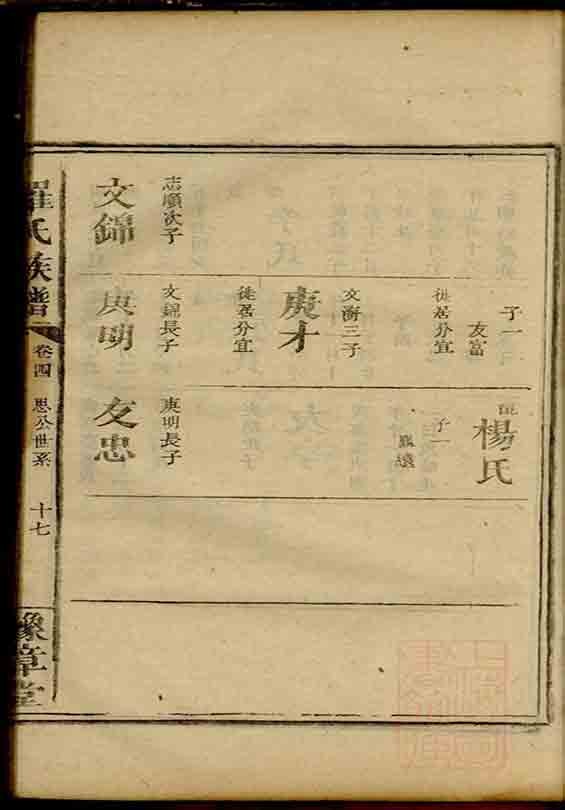 志順次子
文錦
子一
友富
徙居分宜
文衡三子
庚才
徙居分宜
文錦長子
庚明
配
楊氏
子一
勝遠
庚明長子
友忠
羅氏族譜
卷四
思公世系
十七
豫章堂